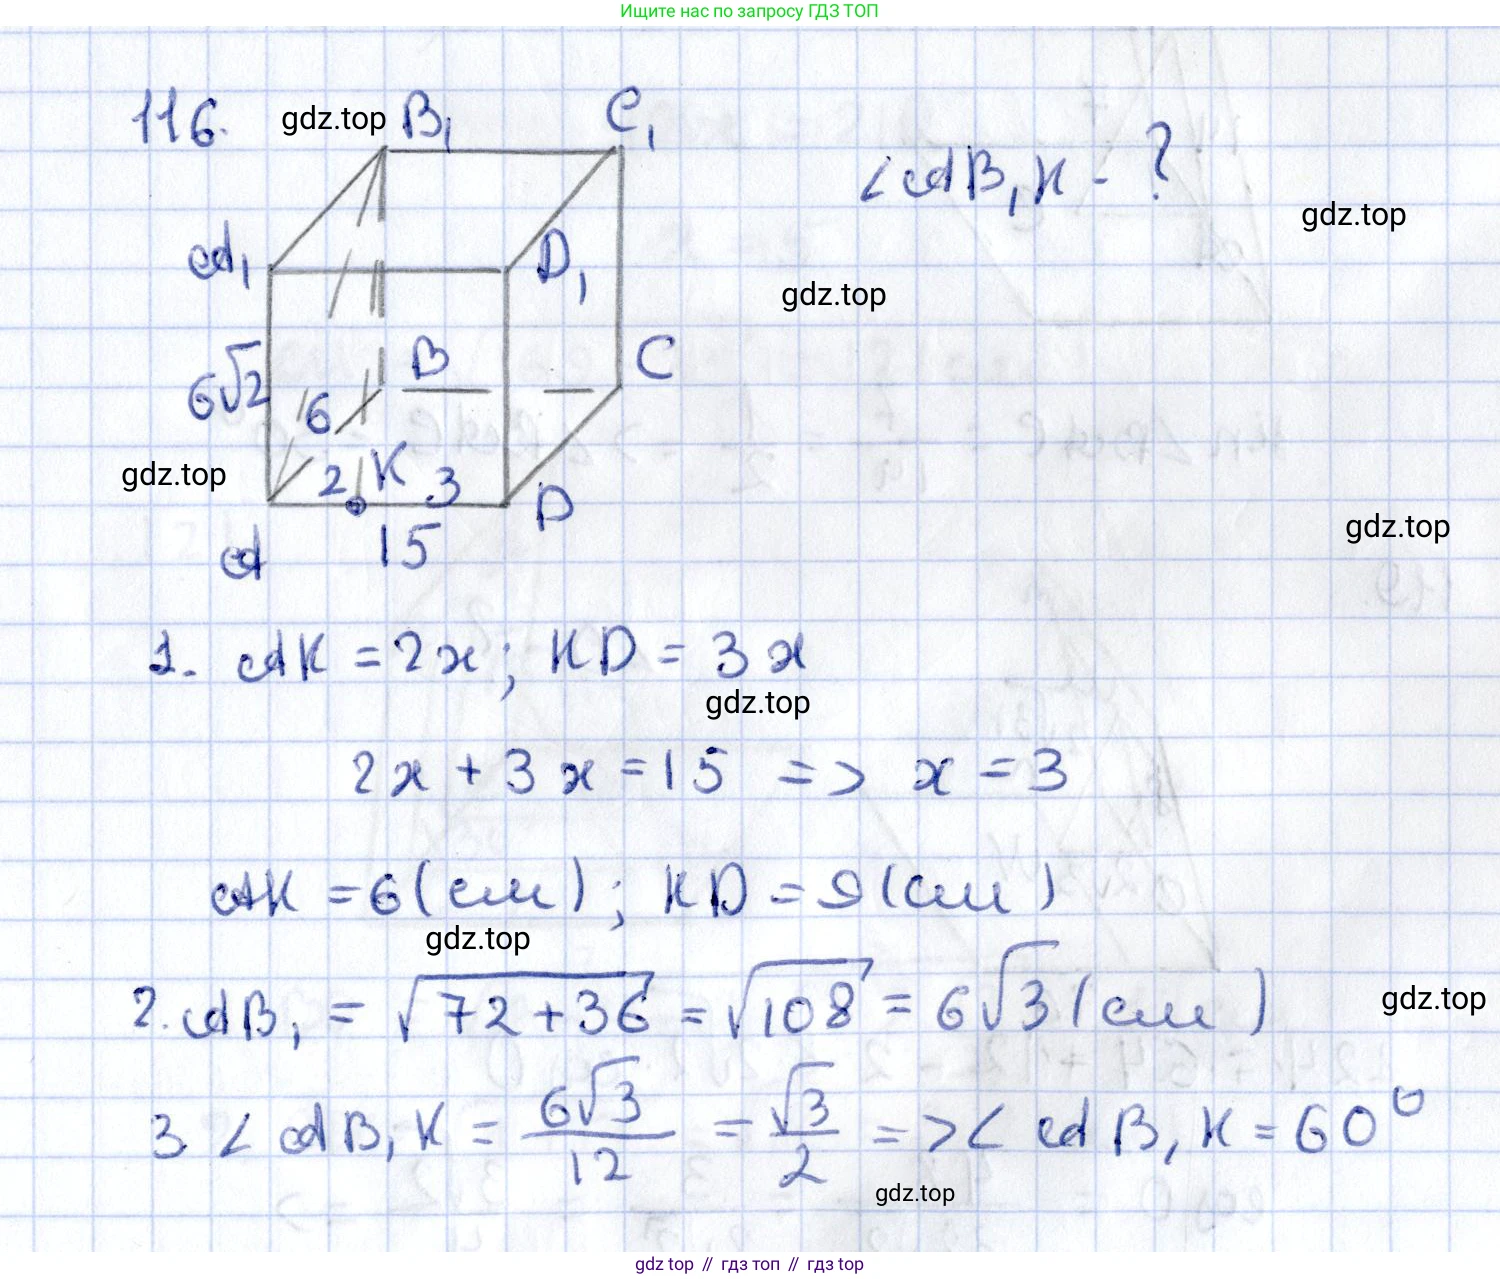 Ищите нас по запросу ГДЗ ТОП
116. gdz.top B₁ C₁
∠AB₁K - ?
gdz.top
A₁ D₁
gdz.top
6√2 6 B C
gdz.top 2 K 3 D
gdz.top
A 15
1. AK = 2x; KD = 3x
gdz.top
2x + 3x = 15 => x = 3
AK = 6 (см); KD = 9 (см)
gdz.top
2. AB₁ = √72+36 = √108 = 6√3 (см)
gdz.top
3. ∠AB₁K = 6√3/12 = √3/2 => ∠AB₁K = 60°
gdz.top
gdz top // гдз топ // гдз top